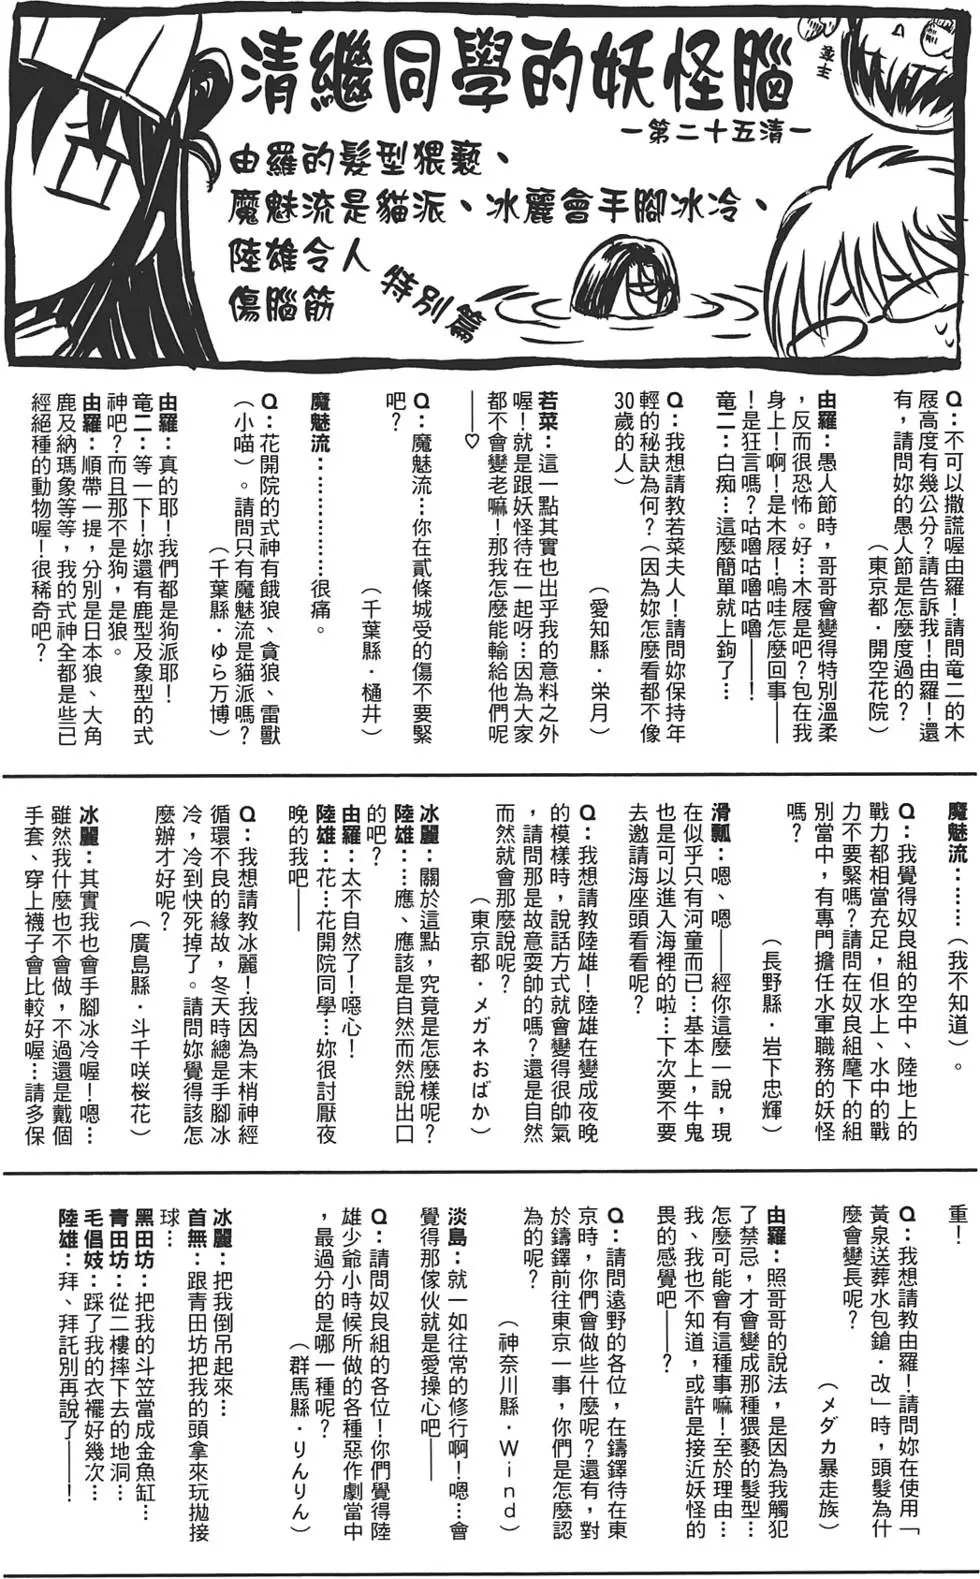 清繼同學的妖怪腦
─第二十五清─
由羅的髮型猥褻、
魔魅流是貓派、冰麗會手腳冰冷、
陸雄令人
傷腦筋
特別篇
Q：不可以撒謊喔由羅！請問竜二的木
屐高度有幾公分？請告訴我！由羅！還
有，請問妳的愚人節是怎麼度過的？
（東京都．開空花院）
由羅：愚人節時，哥哥會變得特別溫柔
，反而很恐怖。好…木屐是吧？包在我
身上！啊！是木屐！嗚哇怎麼回事——
！是狂言嗎？咕嚕咕嚕——！
竜二：白痴…這麼簡單就上鉤了…
Q：我想請教若菜夫人！請問妳保持年
輕的秘訣為何？（因為妳怎麼看都不像
30歲的人）
（愛知縣．栄月）
若菜：這一點其實也出乎我的意料之外
喔！就是跟妖怪待在一起呀…因為大家
都不會變老嘛！那我怎麼能輸給他們呢
——♡
Q：魔魅流…你在貳條城受的傷不要緊
吧？
（千葉縣．樋井）
魔魅流：………………很痛。
Q：花開院的式神有餓狼、貪狼、雷獸
（小喵）。請問只有魔魅流是貓派嗎？
（千葉縣．ゆら万博）
由羅：真的耶！我們都是狗派耶！
竜二：等一下！妳還有鹿型及象型的式
神吧？而且那不是狗，是狼。
由羅：順帶一提，分別是日本狼、大角
鹿及納瑪象等等，我的式神全都是些已
經絕種的動物喔！很稀奇吧？
魔魅流：……（我不知道）。
Q：我覺得奴良組的空中、陸地上的
戰力都相當充足，但水上、水中的戰
力不要緊嗎？請問在奴良組麾下的組
別當中，有專門擔任水軍職務的妖怪
嗎？
（長野縣．岩下忠輝）
滑瓢：嗯、嗯——經你這麼一說，現
在似乎只有河童而已…基本上，牛鬼
也是可以進入海裡的啦…下次要不要
去邀請海座頭看看呢？
Q：我想請教陸雄！陸雄在變成夜晚
的模樣時，說話方式就會變得很帥氣
，請問那是故意耍帥的嗎？還是自然
而然就會那麼說呢？
（東京都．メガネおばか）
冰麗：關於這點，究竟是怎麼樣呢？
陸雄：…應、應該是自然而然說出口
的吧？
由羅：太不自然了！噁心！
陸雄：花…花開院同學…妳很討厭夜
晚的我吧——
Q：我想請教冰麗！我因為末梢神經
循環不良的緣故，冬天時總是手腳冰
冷，冷到快死掉了。請問妳覺得該怎
麼辦才好呢？
（廣島縣．斗千咲桜花）
冰麗：其實我也會手腳冰冷喔！嗯…
雖然我什麼也不會做，不過還是戴個
手套、穿上襪子會比較好喔…請多保
重！
Q：我想請教由羅！請問妳在使用「
黃泉送葬水包鎗．改」時，頭髮為什
麼會變長呢？
（メダカ暴走族）
由羅：照哥哥的說法，是因為我觸犯
了禁忌，才會變成那種猥褻的髮型…
怎麼可能會有這種事嘛！至於理由…
我、我也不知道，或許是接近妖怪的
畏的感覺吧——？
Q：請問遠野的各位，在鑄鐸待在東
京時，你們會做些什麼呢？還有，對
於鑄鐸前往東京一事，你們是怎麼認
為的呢？
（神奈川縣．Wind）
淡島：就一如往常的修行啊！嗯…會
覺得那傢伙就是愛操心吧——
Q：請問奴良組的各位！你們覺得陸
雄少爺小時候所做的各種惡作劇當中
，最過分的是哪一種呢？
（群馬縣．りんりん）
冰麗：把我倒吊起來…
首無：跟青田坊把我的頭拿來玩拋接
球…
黑田坊：把我的斗笠當成金魚缸…
青田坊：從二樓摔下去的地洞…
毛倡妓：踩了我的衣襬好幾次…
陸雄：拜、拜託別再說了——！